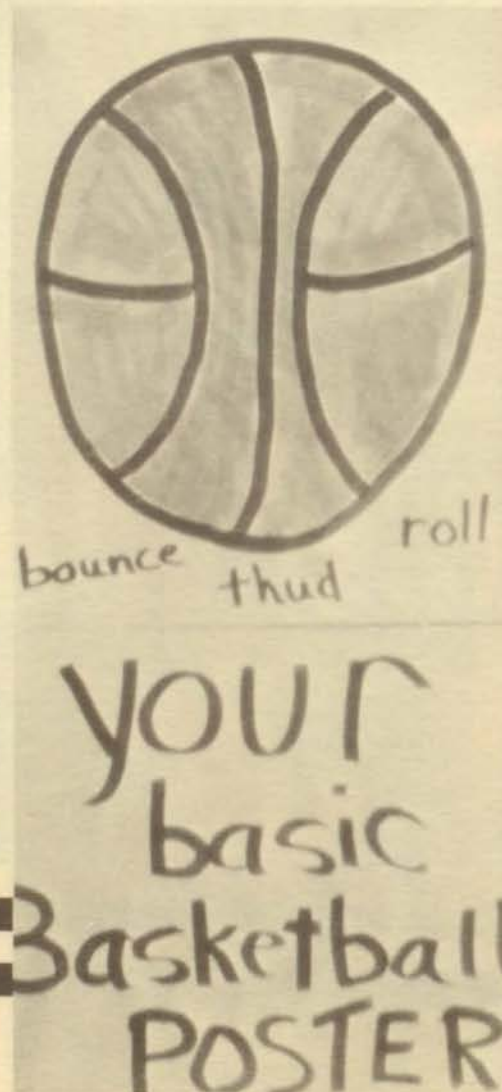 bounce thud roll
your
basic
Basketball
POSTER